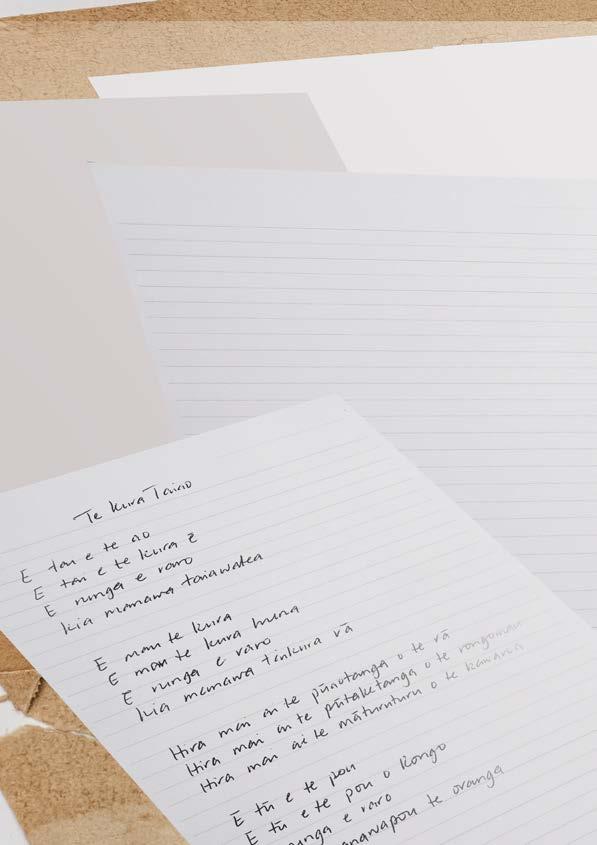 Te Kura Taiao
E tau e te ao
E tau e te kura ē
E runga e raro
kia manawa taiawatea
E mau te kura
E mau te kura huna
E runga e raro
kia manawa tiukura rā
Hira mai ai te pūaotanga o te rā
Hira mai ai te pūtaketanga o te rongomau
Hira mai ai te māturuturu o te kawaua
E tū e te pou
E tū e te pou o Rongo
runga e raro
manawapou te oranga